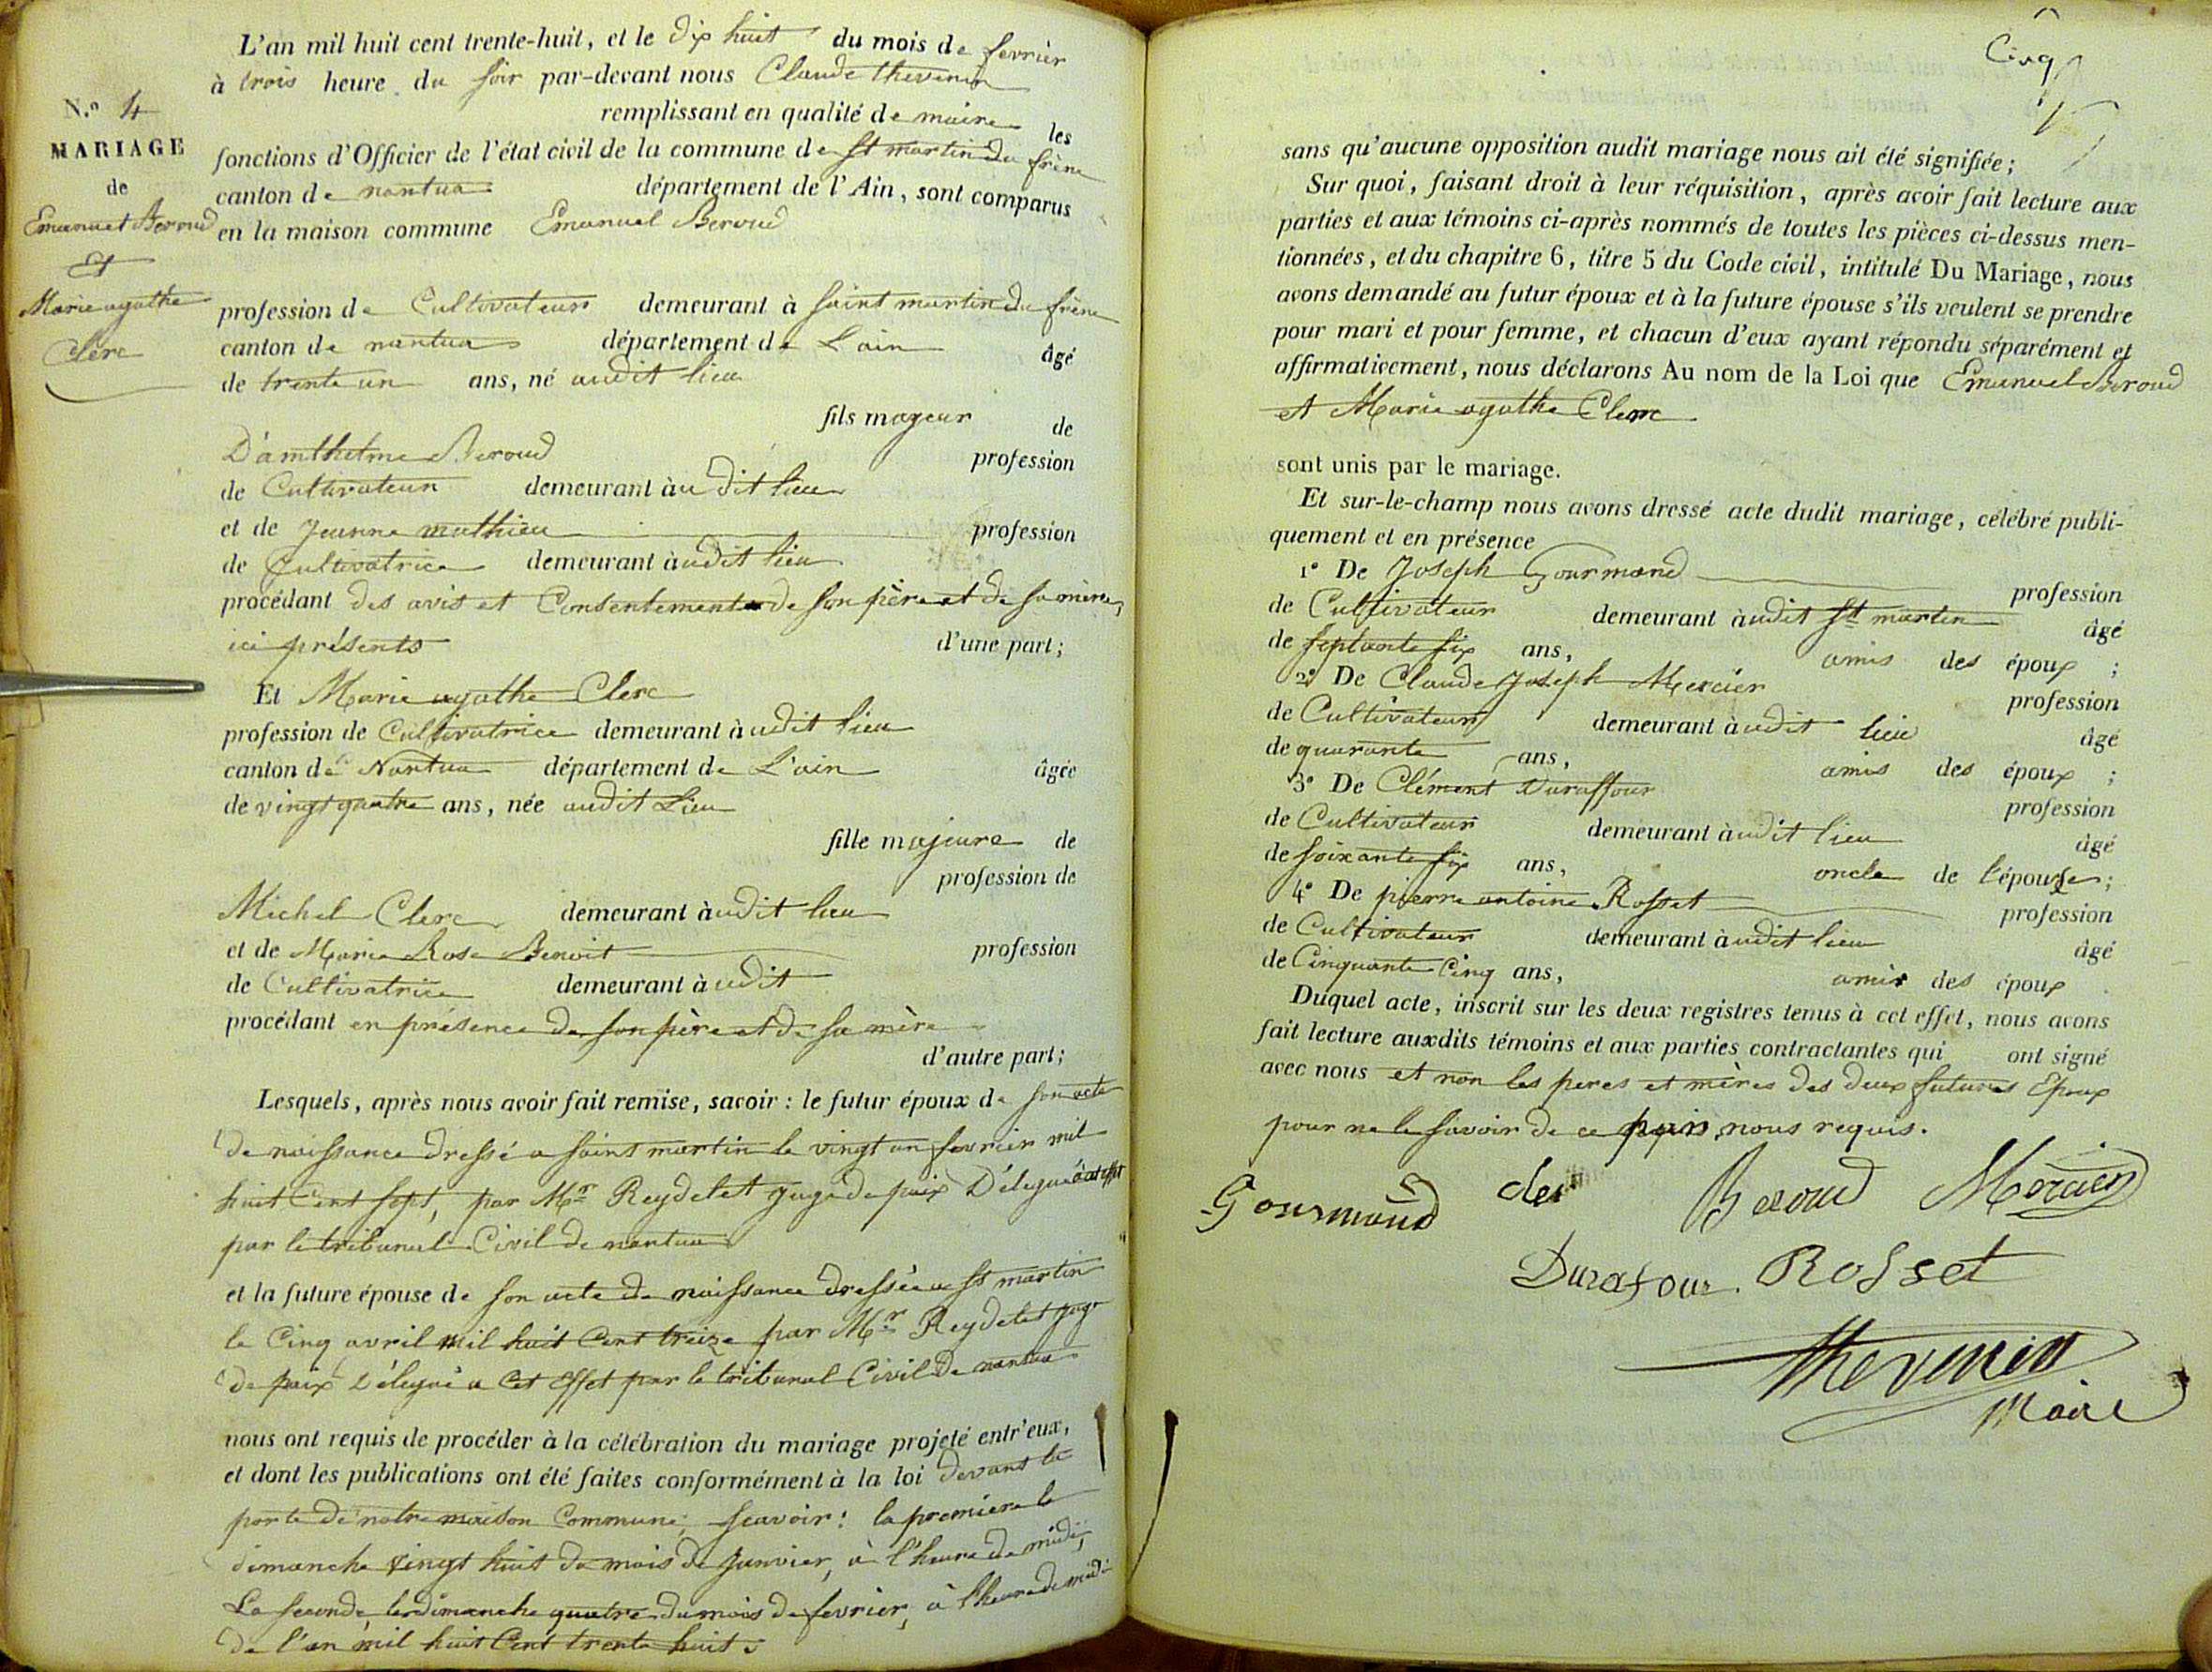 L'an mil huit cent trente-huit, et le dix huit du mois de fevrier
à trois heure du soir par-devant nous Claude thevenin
remplissant en qualité de maire les
N.o 4
MARIAGE
de
Emanuel Beroud
Et
Marie agathe
Clerc
fonctions d'Officier de l'état civil de la commune de St martin du frêne
canton de nantua département de l'Ain, sont comparus
en la maison commune Emanuel Beroud
profession de Cultivateur demeurant à saint martin du frêne
canton de nantua département de L'ain âgé
de trente un ans, né audit lieu
fils majeur de
D'amthelme Beroud profession
de Cultivateur demeurant àu dit lieu
et de Jeanne mathieu profession
de Cultivatrice demeurant àudit lieu
procédant des avis et Consentement de son père et de sa mère,
ici présents d'une part;
Et Marie agathe Clerc
profession de Cultivatrice demeurant àudit lieu
canton de Nantua département de L'ain âgée
de vingt quatre ans, née audit Lieu
fille majeure de
profession de
Michel Clerc demeurant àudit lieu
et de Marie Rose Benoit profession
de Cultivatrice demeurant àudit
procédant en présence de son père et de sa mère
d'autre part;
Lesquels, après nous avoir fait remise, savoir: le futur époux de son acte
de naissance dressé a saint martin le vingt un fevrier mil
huit Cent sept, par Mr Reydelet juge de paix Délegué à cet effet
par le tribunal Civil de nantua
et la future épouse de son acte de naissance dressée a St martin
le Cinq avril mil huit Cent treize par Mr Reydelet juge
de paix Délegué a Cet Effet par le tribunal Civil de nantua
nous ont requis de procéder à la célébration du mariage projeté entr'eux,
et dont les publications ont été faites conformément à la loi devant la
porte de notre maison Commune; scavoir: la premiere le
dimanche vingt huit du mois de Janvier, à l'heure de midi,
La seconde, le dimanche quatre du mois de fevrier, à l'heure de midi
de l'an mil huit Cent trente huit
Cinq
sans qu'aucune opposition audit mariage nous ait été signifiée;
Sur quoi, faisant droit à leur réquisition, après avoir fait lecture aux
parties et aux témoins ci-après nommés de toutes les pièces ci-dessus men-
tionnées, et du chapitre 6, titre 5 du Code civil, intitulé Du Mariage, nous
avons demandé au futur époux et à la future épouse s'ils veulent se prendre
pour mari et pour femme, et chacun d'eux ayant répondu séparément et
affirmativement, nous déclarons Au nom de la Loi que Emanuel Beroud
et Marie agathe Clerc
sont unis par le mariage.
Et sur-le-champ nous avons dressé acte dudit mariage, célébré publi-
quement et en présence
1° De Joseph Gourmand profession
de Cultivateur demeurant àudit St martin âgé
de septante six ans, amis des époux ;
2° De Claude Joseph Mercier profession
de Cultivateur demeurant àudit lieu âgé
de quarante ans, amis des époux ;
3° De Clément Duraffour profession
de Cultivateur demeurant àudit lieu âgé
de soixante six ans, oncle de l'épouse;
4° De pierre antoine Rosset profession
de Cultivateur demeurant àudit lieu âgé
de Cinquante Cinq ans, amis des époux
Duquel acte, inscrit sur les deux registres tenus à cet effet, nous avons
fait lecture auxdits témoins et aux parties contractantes qui ont signé
avec nous et non les peres et mères des deux futures Epoux
pour ne le savoir de ce par nous requis.
Gourmand Beroud Mercier
Durafour. Rosset
thevenin
Maire